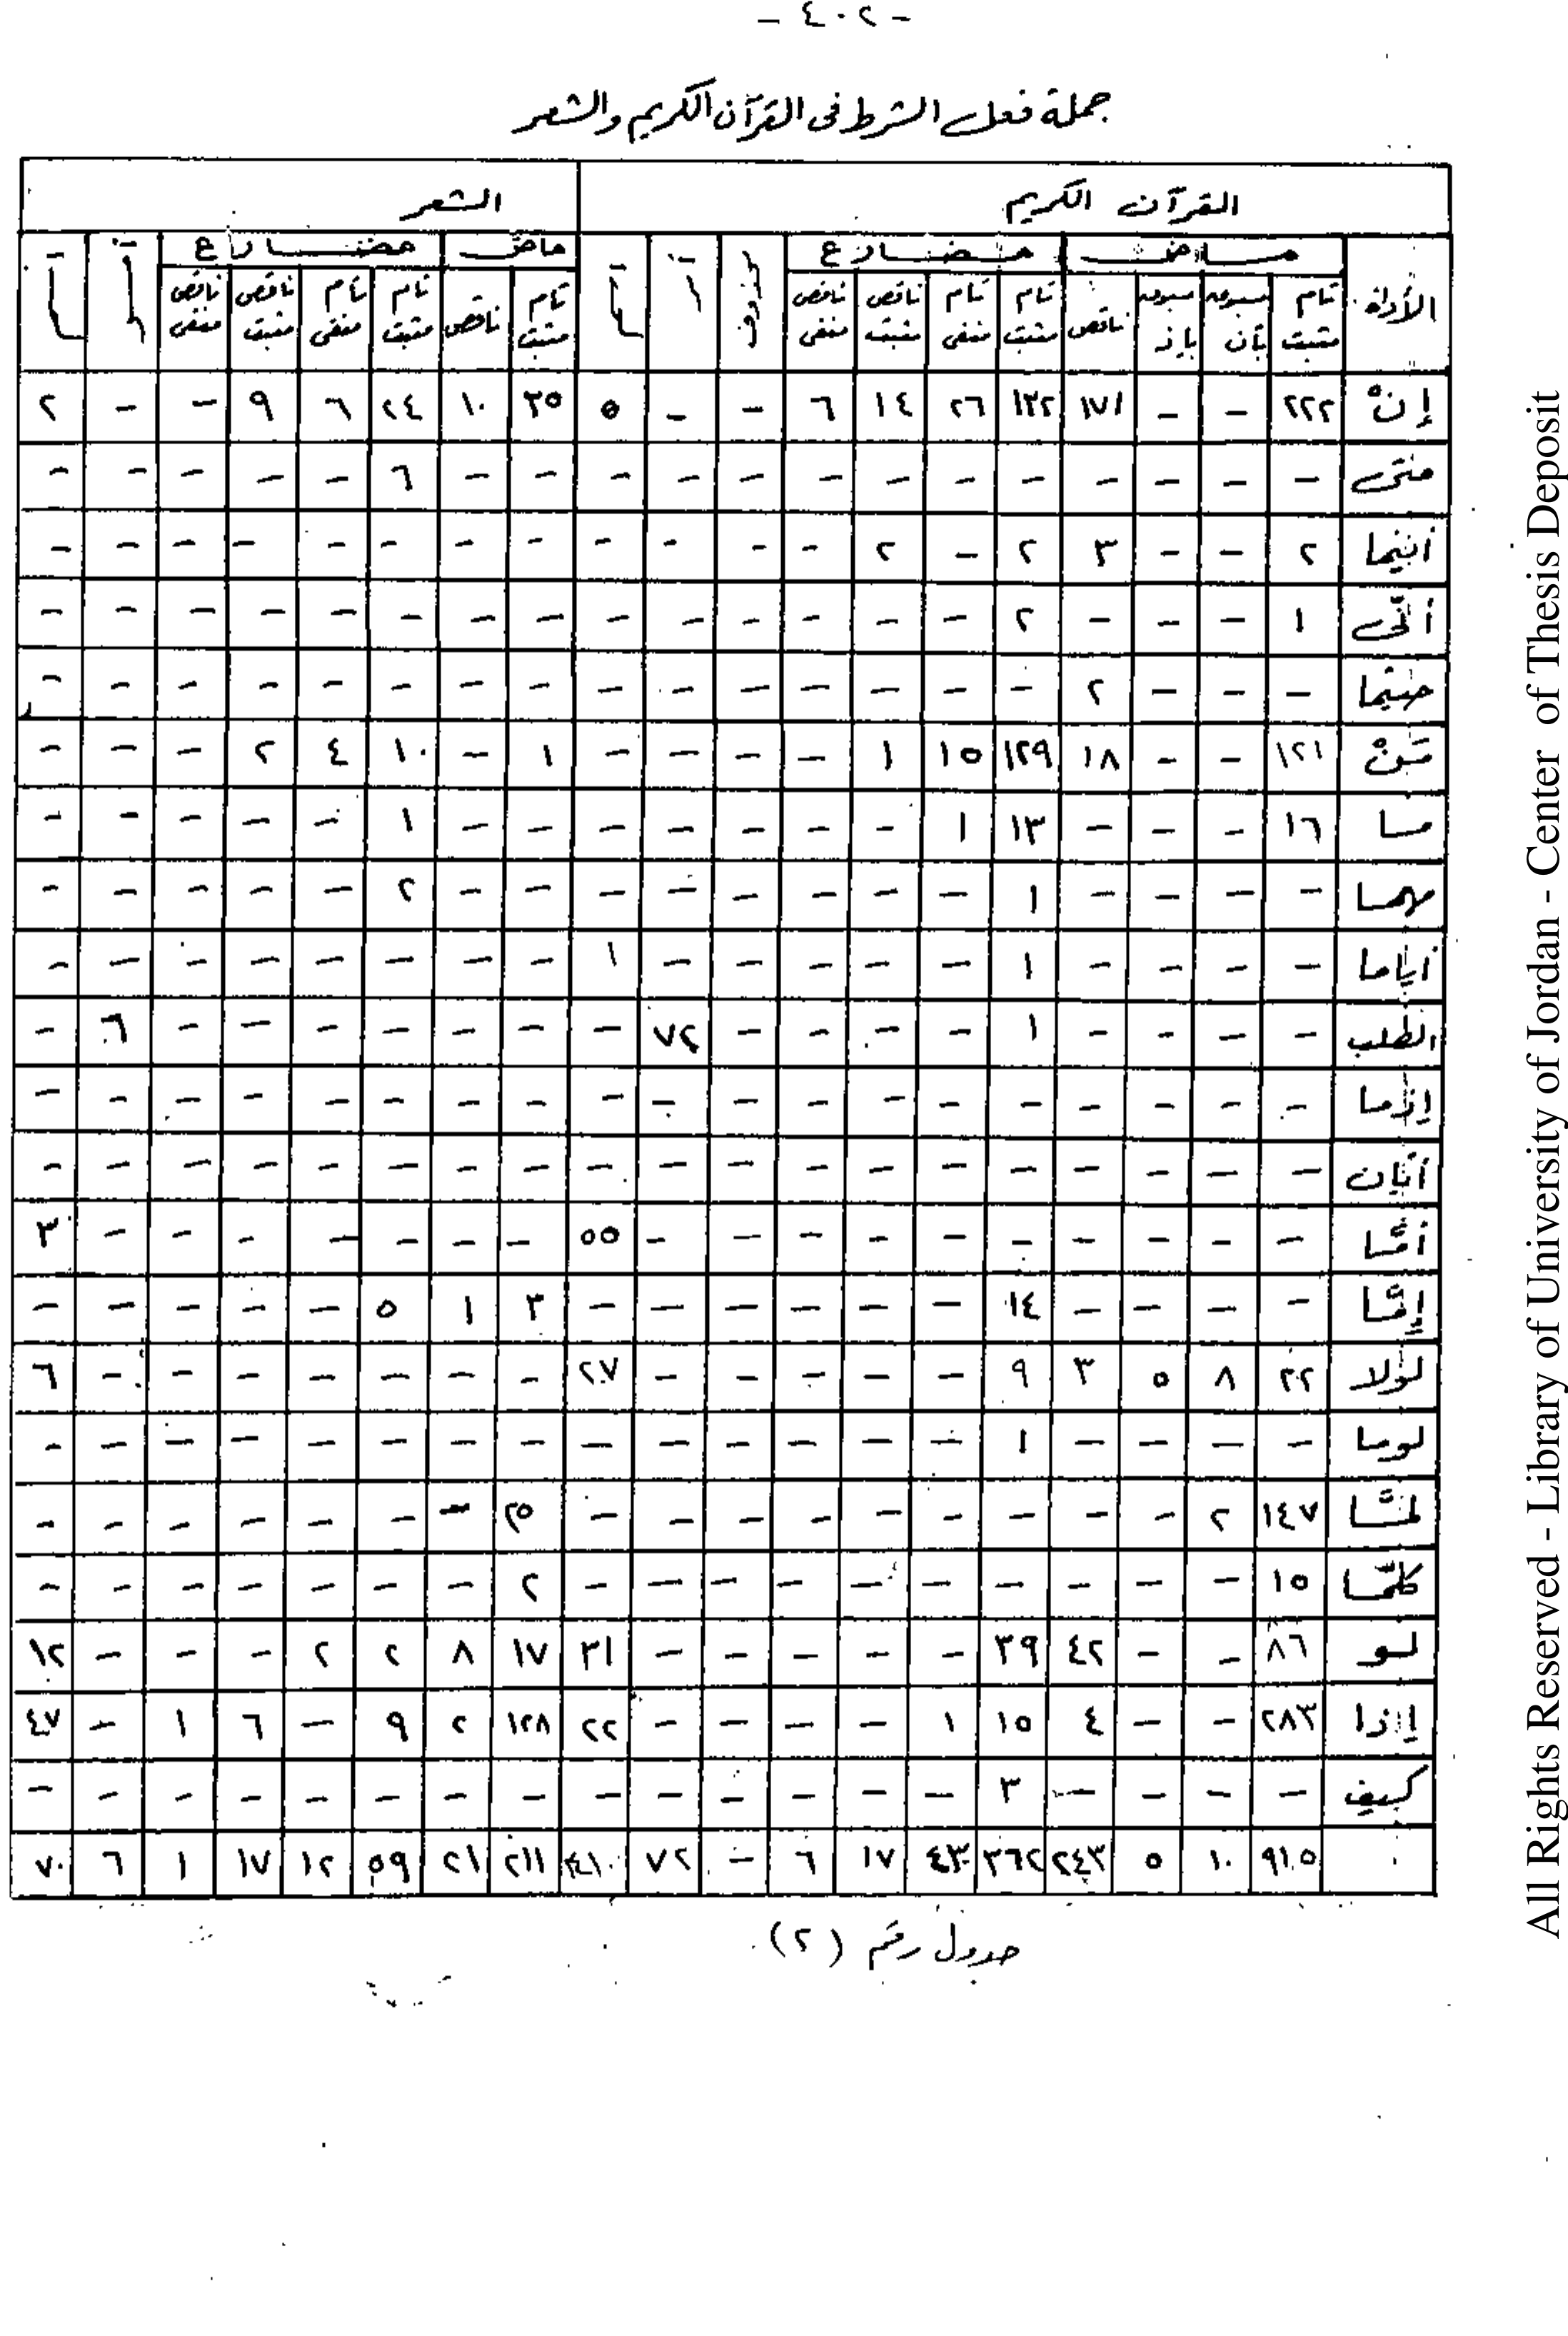 - ٤٠٢ -
جملة فعل الشرط فى القرآن الكريم والشعر
القرآن الكريم الشعر
الأداة ماض مضارع أمر اسم ماض مضارع اسم
تام مثبت مسبوق بأن مسبوق بإذ ناقص تام مثبت تام منفى ناقص مثبت ناقص منفى تام مثبت ناقص تام مثبت تام منفى ناقص مثبت ناقص منفى
إنْ ٢٢٢ - - ١٧١ ١٣٢ ٢٦ ١٤ ٦ - - ٥ ٣٥ ١٠ ٢٤ ٦ ٩ - - ٢
متى - - - - - - - - - - - - - ٦ - - - - -
أينما ٢ - - ٣ ٢ - ٢ - - - - - - - - - - - -
أنّى ١ - - - ٢ - - - - - - - - - - - - - -
حيثما - - - ٢ - - - - - - - - - - - - - - -
مَنْ ١٢١ - - ١٨ ١٢٩ ١٥ ١ - - - - ١ - ١٠ ٤ ٢ - - -
ما ١٦ - - - ١٣ ١ - - - - - - - ١ - - - - -
مهما - - - - ١ - - - - - - - - ٢ - - - - -
أياما - - - - ١ - - - - - ١ - - - - - - - -
الطلب - - - - ١ - - - - ٧٢ - - - - - - - ٦ -
إذما - - - - - - - - - - - - - - - - - - -
أيان - - - - - - - - - - - - - - - - - - -
أمّا - - - - - - - - - - ٥٥ - - - - - - - ٣
إمّا - - - - ١٤ - - - - - - ٣ ١ ٥ - - - - -
لولا ٢٢ ٨ ٥ ٣ ٩ - - - - - ٢٧ - - - - - - - ٦
لوما - - - - ١ - - - - - - - - - - - - - -
لمّا ١٤٧ ٢ - - - - - - - - - ٢٥ - - - - - - -
كلّما ١٥ - - - - - - - - - - ٢ - - - - - - -
لو ٨٦ - - ٤٢ ٣٩ - - - - - ٣١ ١٧ ٨ ٢ ٢ - - - ١٢
إذا ٢٨٣ - - ٤ ١٥ ١ - - - - ٢٢ ١٢٨ ٢ ٩ - ٦ ١ - ٤٧
كيف - - - - ٣ - - - - - - - - - - - - - -
٩١٥ ١٠ ٥ ٢٤٣ ٣٦٢ ٤٣ ١٧ ٦ - ٧٢ ٢١١ ٢١ ٥٩ ١٢ ١٧ ١ ٦ ٧٠
جدول رقم (٢)
All Rights Reserved - Library of University of Jordan - Center of Thesis Deposit